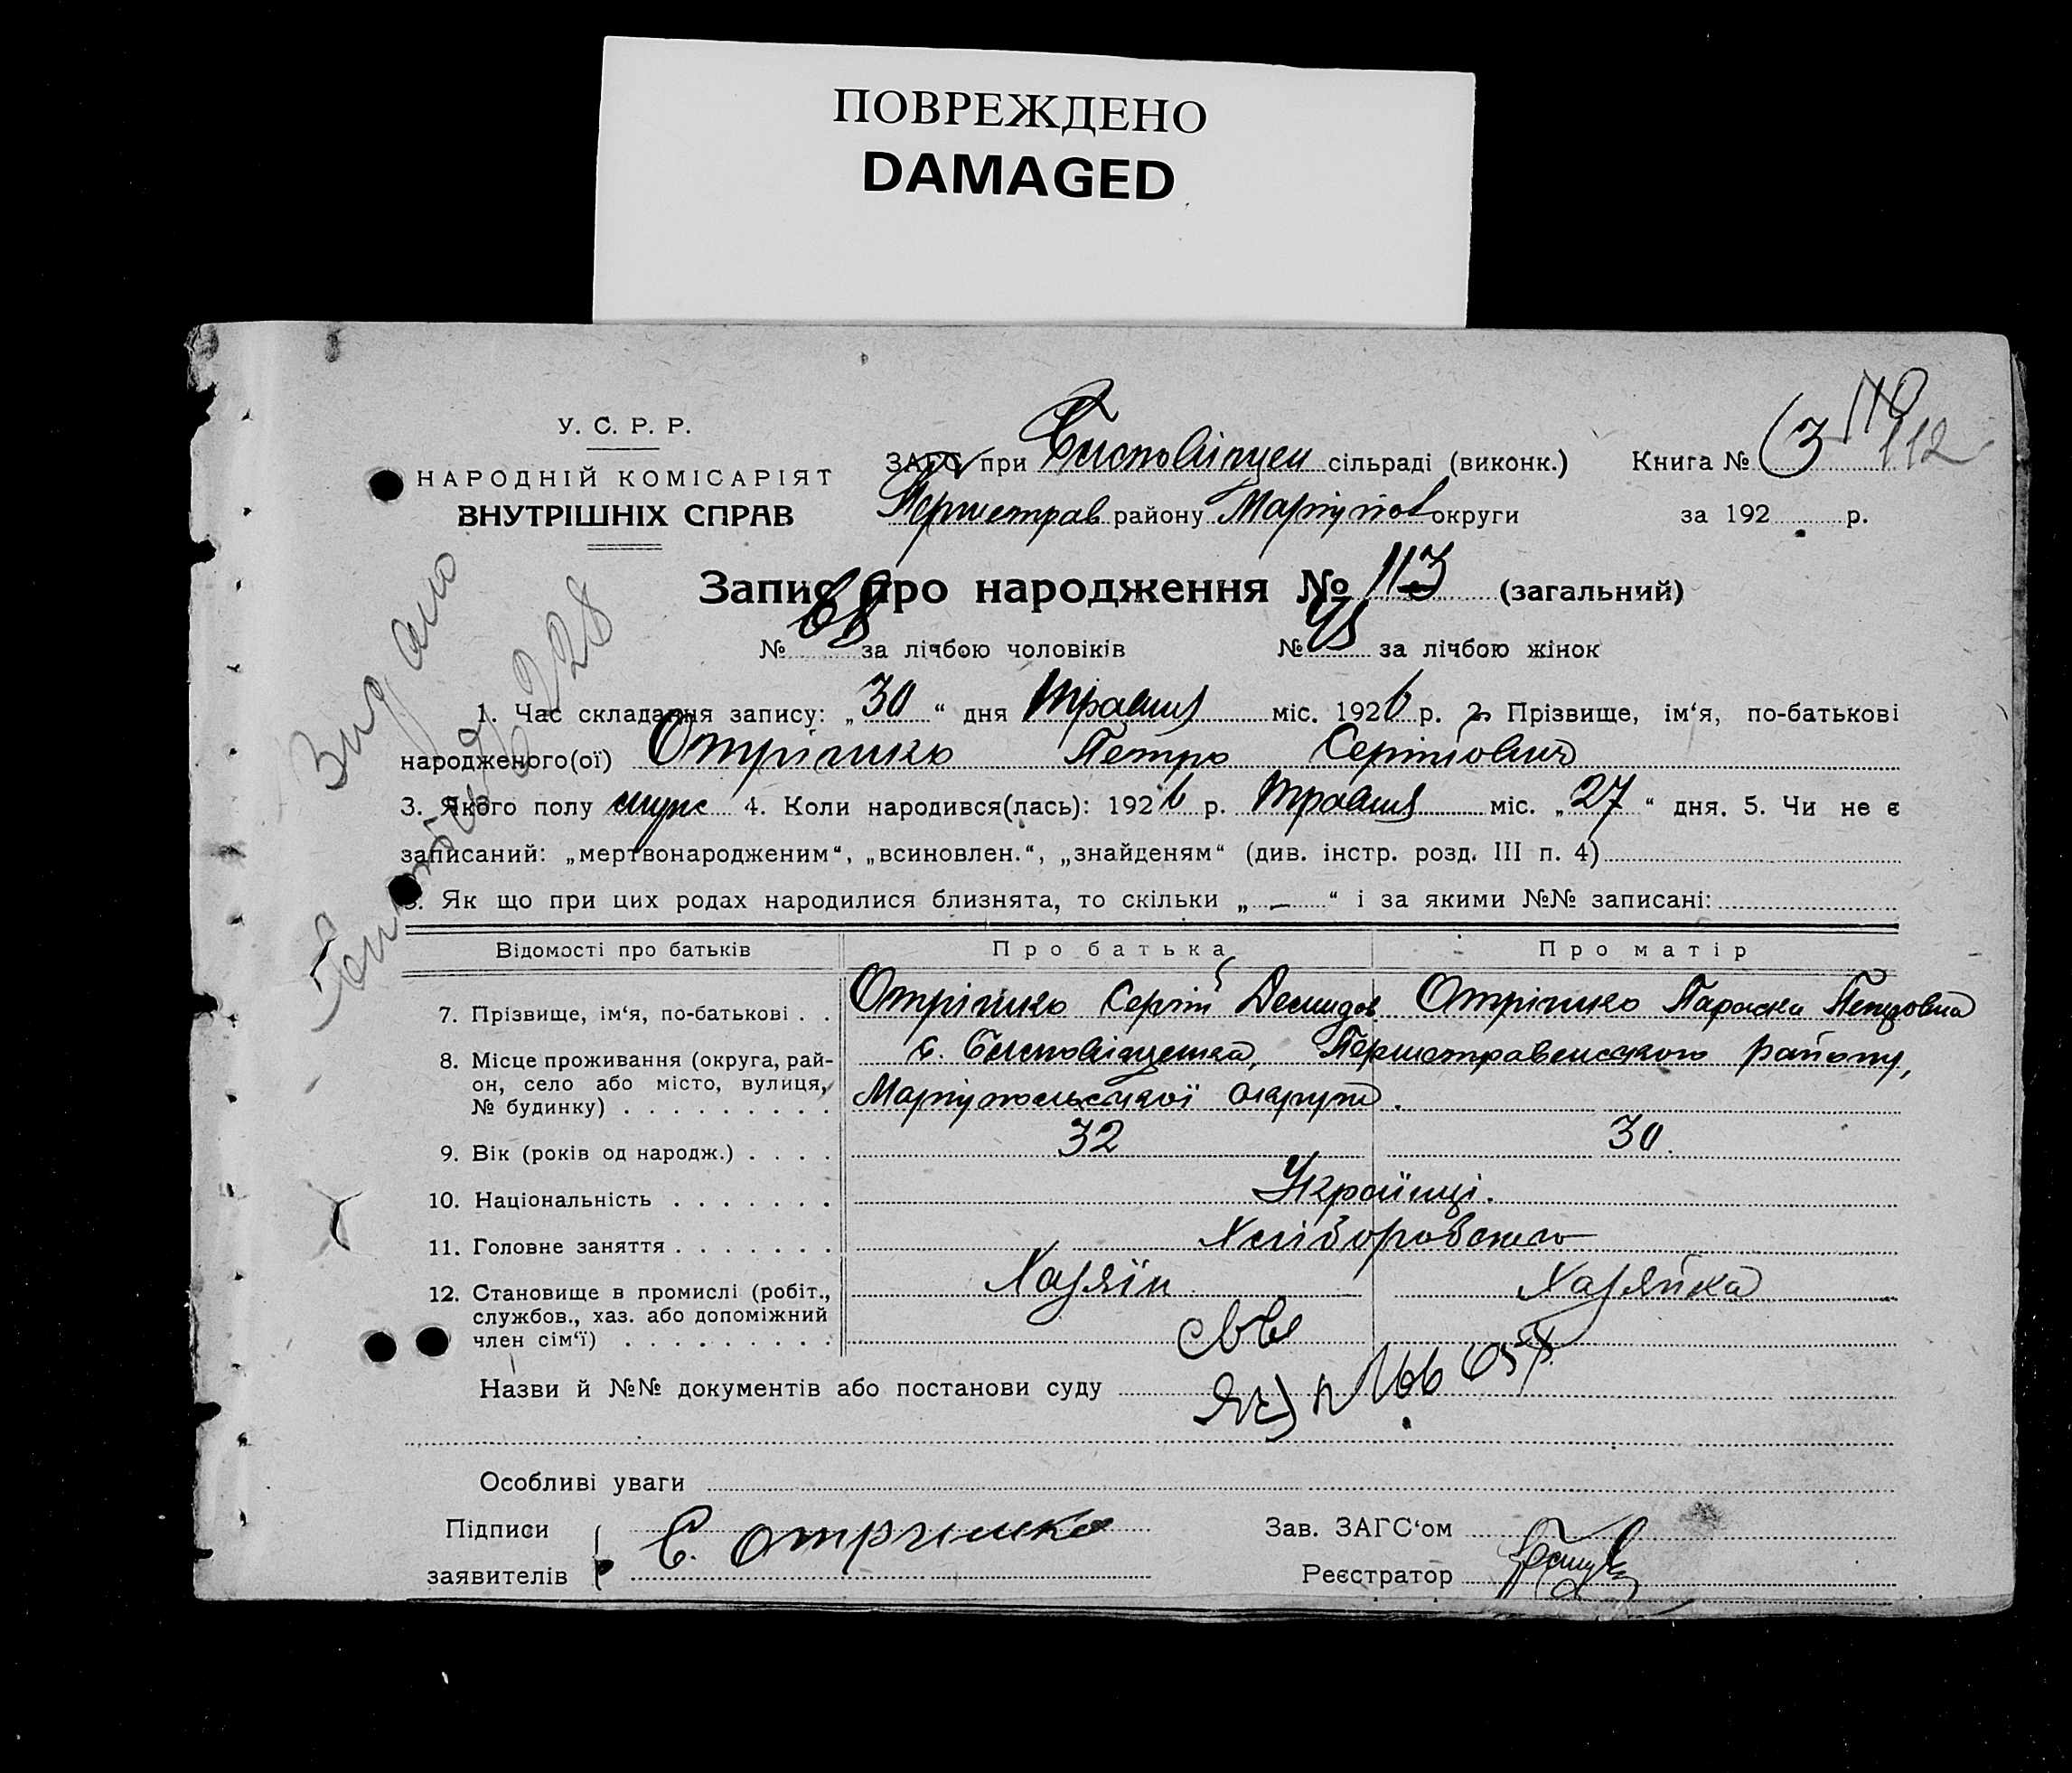 ПОВРЕЖДЕНО
DAMAGED
У. С. Р. Р.
НАРОДНІЙ КОМІСАРІЯТ
ВНУТРІШНІХ СПРАВ
ЗАГС при сільраді (виконк.) Книга № 3 112
Першотрав району Маріупов округи за 192 р.
Запис про народження № 113 (загальний)
№ 68 за лічбою чоловіків № 45 за лічбою жінок
1. Час складання запису: „ 30 “ дня Травня міс. 1926 р. 2. Прізвище, ім‘я, по-батькові
народженого(ої) Отрішко Петро Сергійович
3. Якого полу муж 4. Коли народився(лась): 1926 р. Травня міс. „ 27 “ дня. 5. Чи не є
записаний: „мертвонародженим“, „всиновлен.“, „знайденям“ (див. інстр. розд. III п. 4)
Як що при цих родах народилися близнята, то скільки „ — “ і за якими №№ записані:
Відомості про батьків Про батька Про матір
7. Прізвище, ім‘я, по-батькові . . Отрішко Сергій Демидов Отрішко Параска Петровна
8. Місце проживання (округа, рай-
он, село або місто, вулиця,
№ будинку) . . . . . . . . .
с. Першотравенського району,
Маріупольської округи.
9. Вік (років од народж.) . . . . 32 30.
10. Національність . . . . . . . Українці.
11. Головне заняття . . . . . . . Хліборобство
12. Становище в промислі (робіт.,
службов., хаз. або допоміжний
член сім‘ї) . . . . . . . . .
Хазяїн Хазяйка
Назви й №№ документів або постанови суду
Особливі уваги
Підписи
заявителів
С. Отришко
Зав. ЗАГС‘ом
Реєстратор
Видано
228